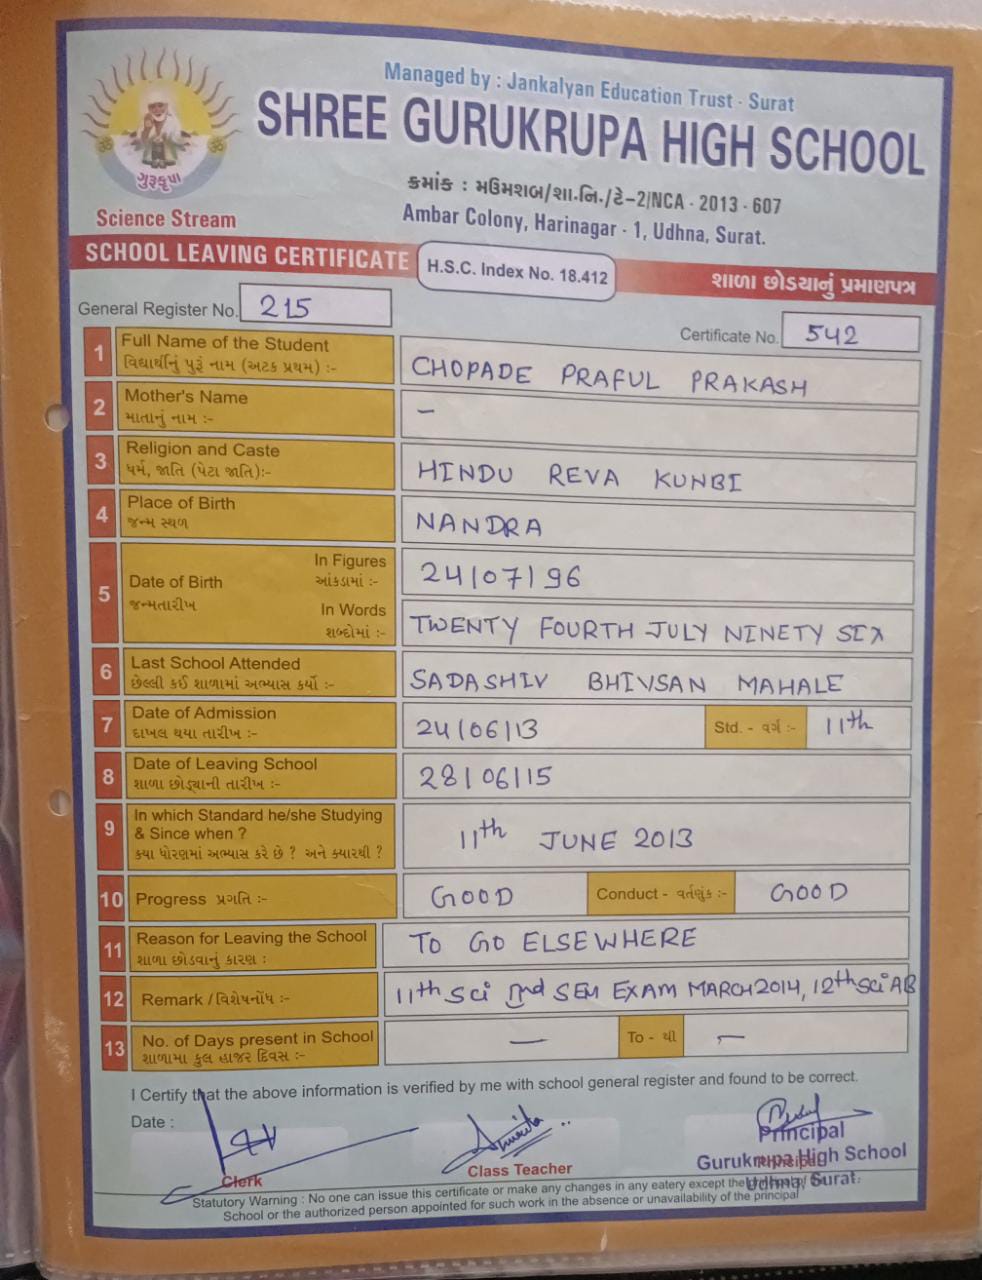 Managed by : Jankalyan Education Trust - Surat
SHREE GURUKRUPA HIGH SCHOOL
ગુરૂકૃપા
ક્રમાંક : મઉમશબ/શા.નિ./ટે-2/NCA - 2013 - 607
Ambar Colony, Harinagar - 1, Udhna, Surat.
Science Stream
SCHOOL LEAVING CERTIFICATE
H.S.C. Index No. 18.412
શાળા છોડયાનું પ્રમાણપત્ર
General Register No. 215
Certificate No. 542
1 Full Name of the Student
વિદ્યાર્થીનું પુરૂં નામ (અટક પ્રથમ) :-
CHOPADE PRAFUL PRAKASH
2 Mother's Name
માતાનું નામ :-
–
3 Religion and Caste
ધર્મ, જાતિ (પેટા જાતિ):-
HINDU REVA KUNBI
4 Place of Birth
જન્મ સ્થળ
NANDRA
5 Date of Birth
જન્મતારીખ
In Figures
આંકડામાં :-
24/07/96
In Words
શબ્દોમાં :-
TWENTY FOURTH JULY NINETY SIX
6 Last School Attended
છેલ્લી કઈ શાળામાં અભ્યાસ કર્યો :-
SADASHIV BHIVSAN MAHALE
7 Date of Admission
દાખલ થયા તારીખ :-
24/06/13
Std. - વર્ગ :- 11th
8 Date of Leaving School
શાળા છોડ્યાની તારીખ :-
28/06/15
9 In which Standard he/she Studying
& Since when ?
ક્યા ધોરણમાં અભ્યાસ કરે છે ? અને ક્યારથી ?
11th JUNE 2013
10 Progress પ્રગતિ :- GOOD Conduct - વર્તણુંક :- GOOD
11 Reason for Leaving the School
શાળા છોડવાનું કારણ :
TO GO ELSEWHERE
12 Remark / વિશેષનોંધ :-
11th Sci IInd SEM EXAM MARCH 2014, 12th Sci AB
13 No. of Days present in School
શાળામા કુલ હાજર દિવસ :-
– To - થી –
I Certify that the above information is verified by me with school general register and found to be correct.
Date :
Clerk
Class Teacher
Principal
Gurukrupa High School
Udhna, Surat.
Statutory Warning : No one can issue this certificate or make any changes in any eatery except the principal of the
School or the authorized person appointed for such work in the absence or unavailability of the principal